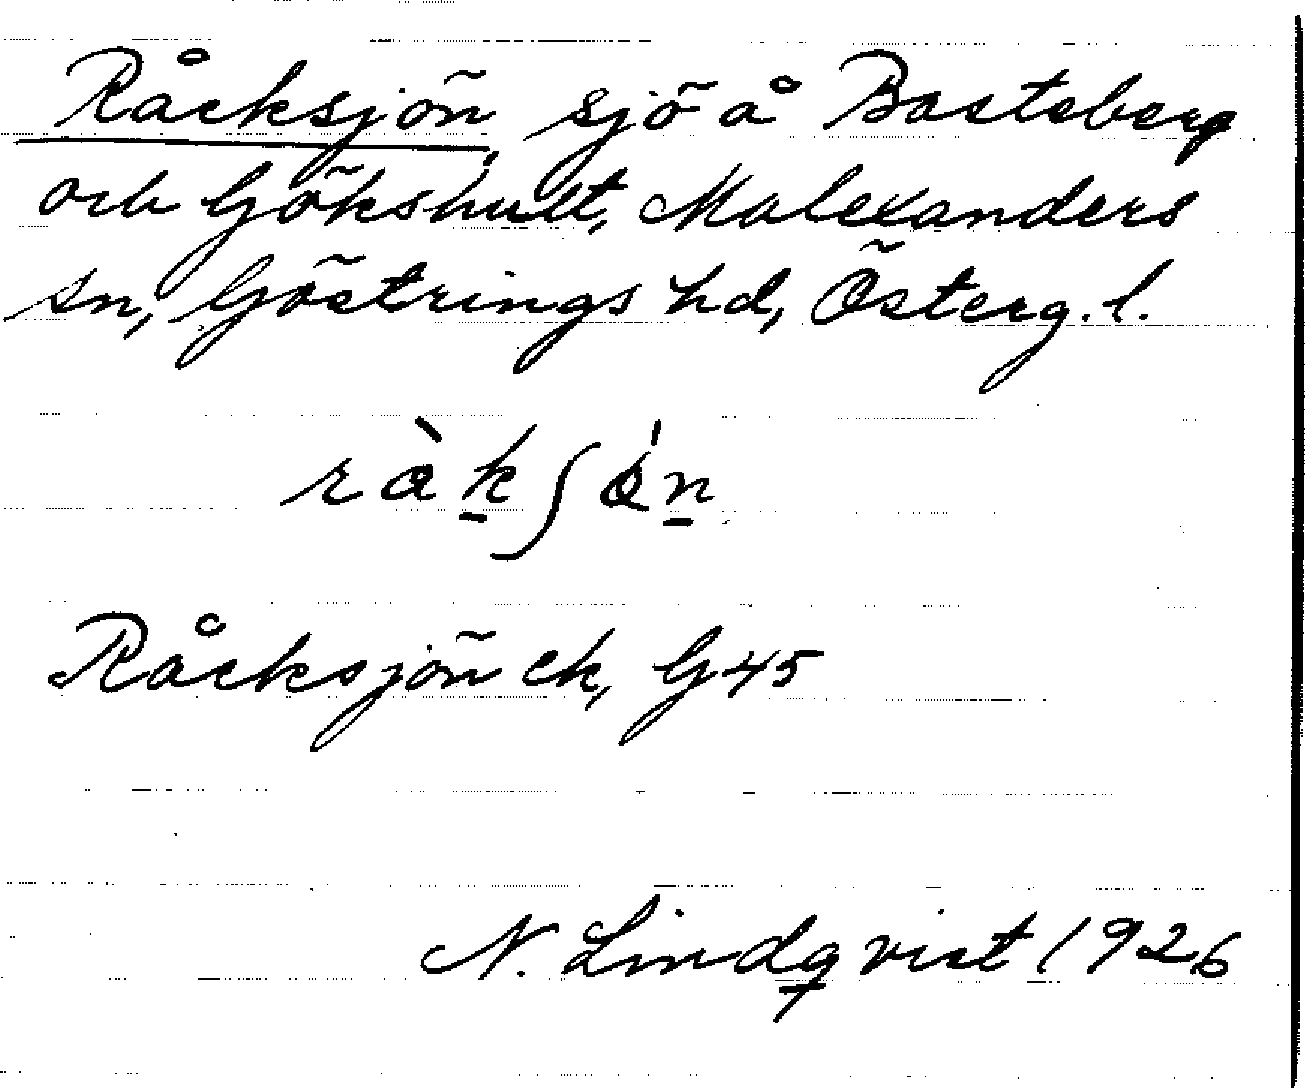 Råcksjön, sjö å Basteberg
och Gökshult, Malexanders
sn, Göstrings hd, Österg. l.
Råcksjön ek, G45
N. Lindqvist 1926